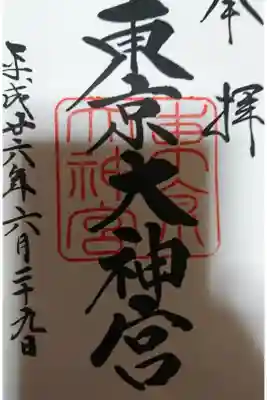 奉拝
東京大神宮
平成廿六年六月二十九日
東京大神宮